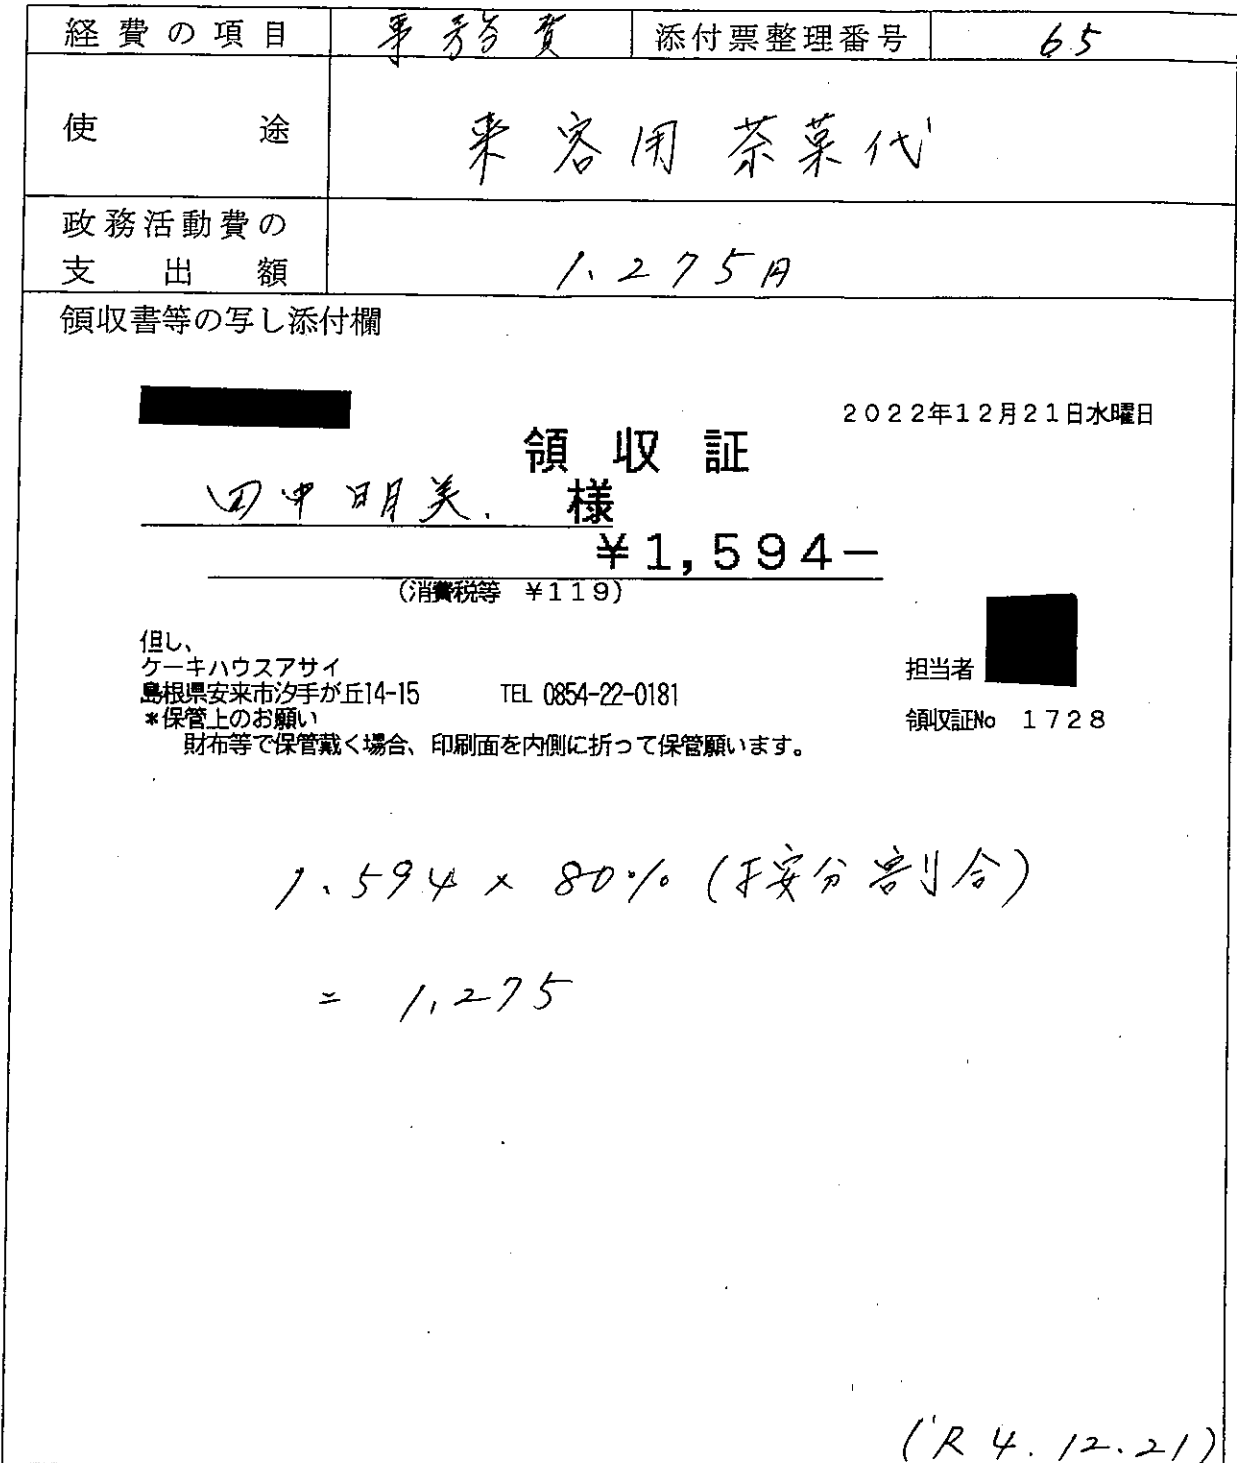 経費の項目 事務費 添付票整理番号 65
使途 来客用茶菓代
政務活動費の
支出額 1.275円
領収書等の写し添付欄
2022年12月21日水曜日
領収証
田中明美. 様
¥1,594−
(消費税等 ¥119)
但し、
ケーキハウスアサイ
担当者
島根県安来市汐手が丘14-15 TEL 0854-22-0181
*保管上のお願い
領収証No 1728
財布等で保管戴く場合、印刷面を内側に折って保管願います。
1.594 × 80% (按分割合)
= 1,275
(R4.12.21)